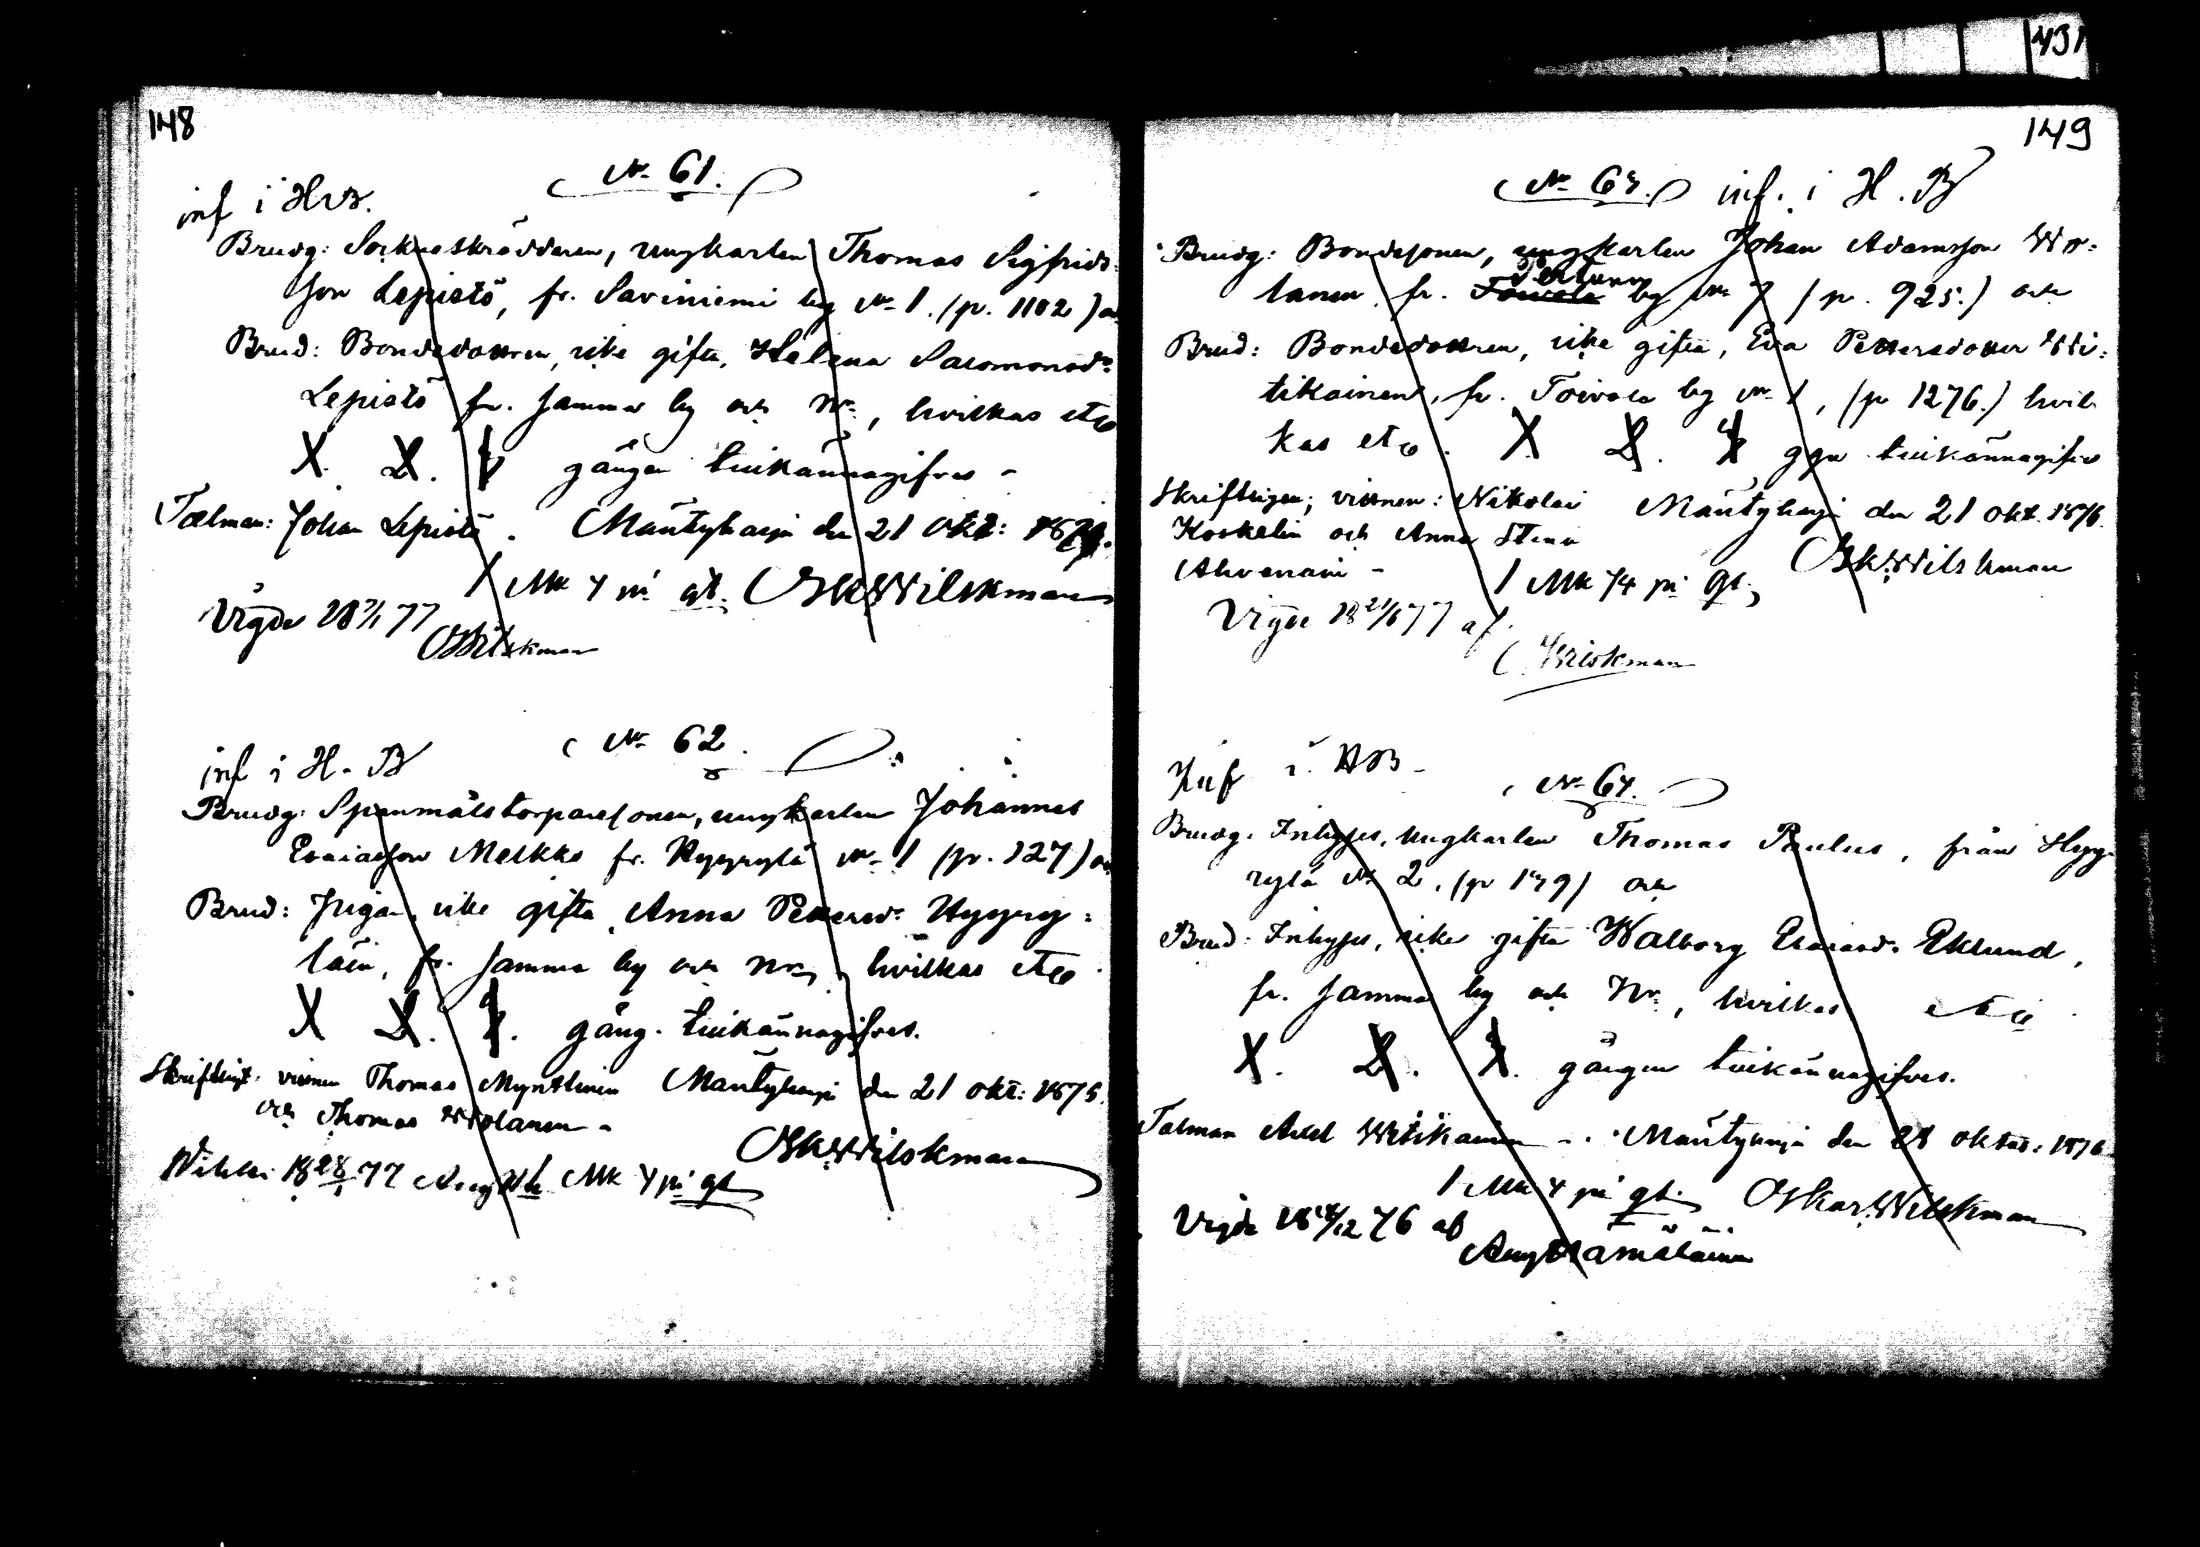 431
148
No 61.
inf i H.B.
Brudg: Sockneskräddaren, ungkarlen Thomas Sigfrids-
son Lepistö, fr. Saviniemi by No 1. (p. 1102)
Brud: Bondedottren, icke gifta, Helena Salomonsdr
Lepistö fr. samma by och Nr, hvilkas etc
X. 2. gången tillkännagifves -
Talman: Johan Lepistö. Mäntyharju den 21 Okt: 187
1 Mk 4 pi gt. Osk Wilskman
Vigde 18 7/1 77
OWilskman
No 62.
inf i H. B
Brudg: Spanmålstorparesonen, ungkarlen Johannes
Esaiasson Melkko fr. Hyyrylä No 1 (p. 127)
Brud: Pigan, icke gifta, Anna Pettersdr Hyyry=
läin, fr. samma by och nr, hvilkas etc
X 2. 3. gång. tillkännagifves.
Skriftligt. vittnen Thomas Mynttinen Mäntyharju den 21 okt: 1876.
och Thomas Wolanen -
Osk. Wilskman
Wihki 18 28/1 77 Aug Mk 4 pi gt
149
No 63. inf. i H. B
Brudg: Bondesonen, ungkarlen Johan Adamsson Wo=
lanen, fr. Toivola by No 7 (p. 925.) och
Brud: Bondedottren, icke gifta, Eva Pettersdotter Wi=
tikainen, fr. Toivola by No 1, (p 1276.) hvil
kas etc. X. 2. 3 ggn tillkännagifves
Skriftligen; vittnen: Nikolai Mäntyharju den 21 Okt. 1876.
Koskelin och Anna Stina
Ahvenain - Osk. Wilskman
1 Mk 74 pi gt.
Vigde 18 21/6 77 af
Wilskman
Inf i. HB -
No 64.
Brudg. Inhyses, Ungkarlen Thomas Paulus, från Hyy-
rylä No 2. (p 179) och
Brud: Inhyses, icke gifta Walborg Esaiasdr Eklund,
fr. samma by och Nr, hvilkas etc
X. 2. 3. gången tillkännagifves.
Talman Axel Witikainen -. Mäntyharju den 28 oktob: 1876
1 Mk 4 pi gt. Oskar Wilskman
Vigde 18 /12 76 af
Aug Hämäläinen